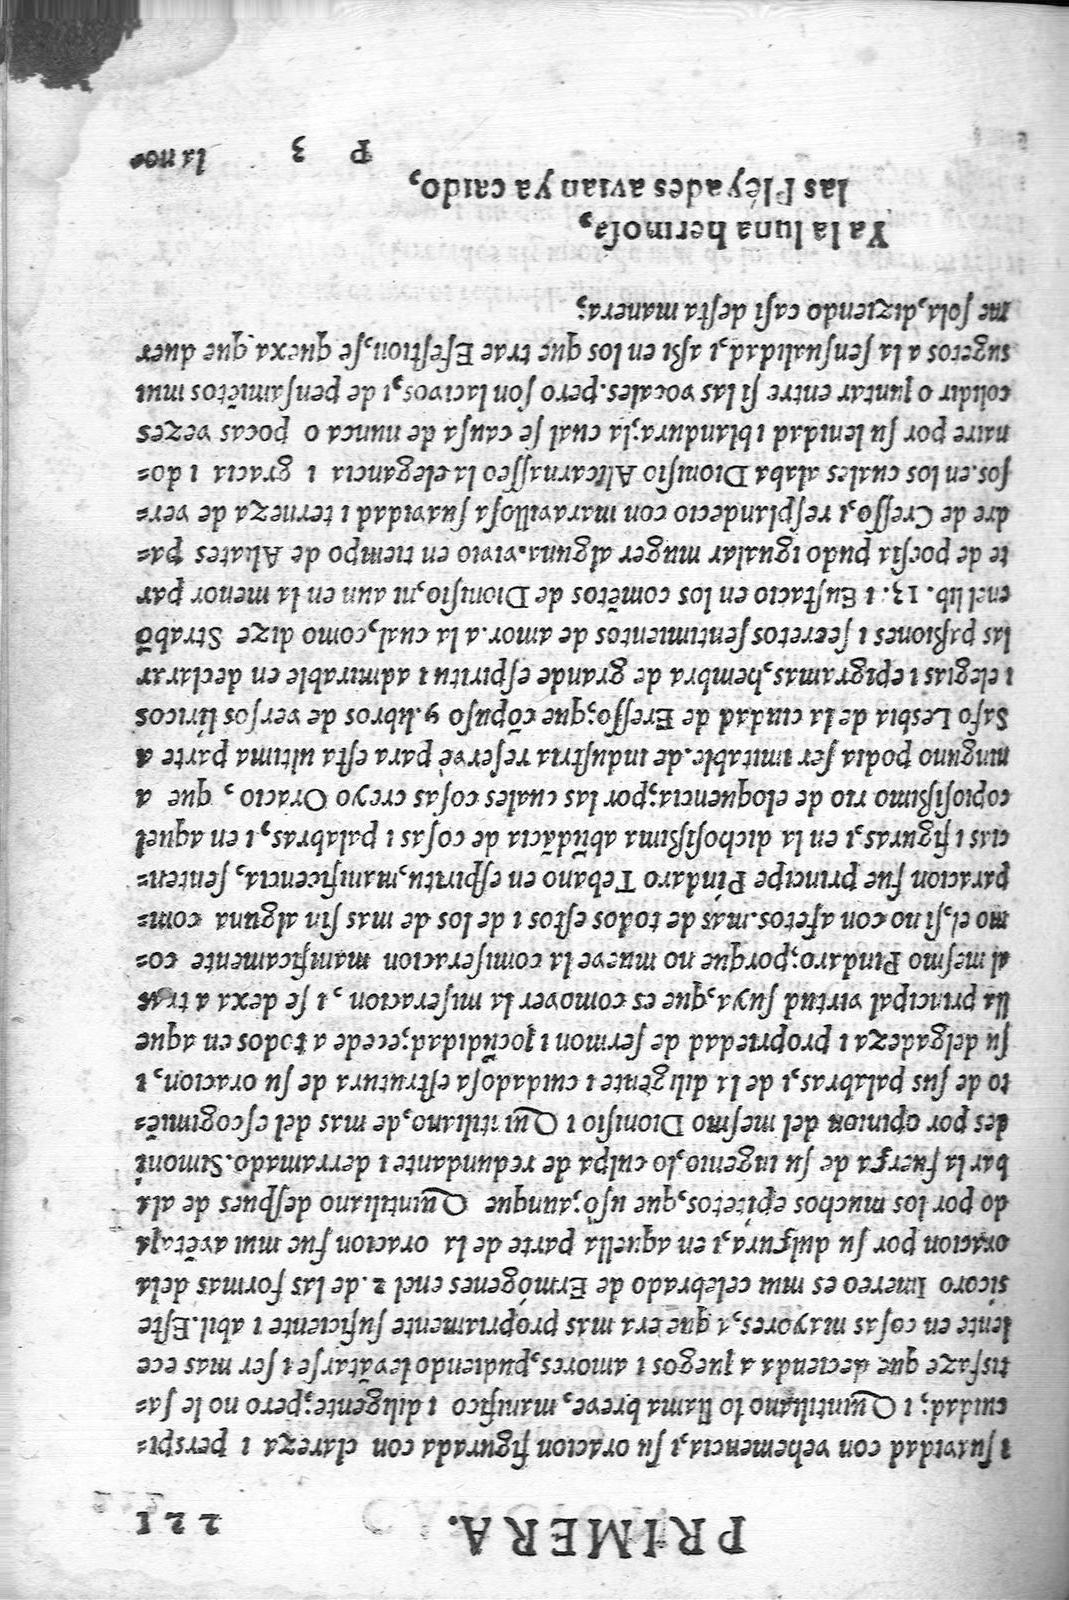 PRIMERA. 221
i suavidad con vehemencia, i su oracion figurada con clareza i perspi=
cuidad; i Quintiliano lo llama breve, manifico i diligente; pero no le sa=
tisfaze que decienda a juegos i amores, pudiendo levātarse i ser mas ece
lente en cosas mayores, a que era mas propriamente suficiente i abil. Este
sicoro Imereo es mui celebrado de Ermógenes enel 2. de las formas dela
oracion por su dulçura, i en aquella parte de la oracion fue mui avētaja
do por los muchos epitetos, que usò; aunque Quintiliano despues de ala
bar la fuerça de su ingenio, lo culpa de redundante i derramado. Simoni
des por opinion del mesmo Dionisio i Quintiliano, de mas del escogimiē=
to de sus palabras, i de la diligēte i cuidadosa estrutura de su oracion, i
su delgadeza i propriedad de sermon i jocūdidad; ecede a todos en aque
lla principal virtud suya, que es comover la miseracion, i se dexa a tras
al mesmo Pindaro; porque no mueve la comiseracion manificamente co=
mo el, si no con afetos. mas de todos estos i de los de mas sin alguna com=
paracion fue principe Pindaro Tebano en espiritu, manificencia, senten=
cias i figuras, i en la dichosissima abūdācia de cosas i palabras, i en aquel
copiosissimo rio de eloquencia; por las cuales cosas creyo Oracio, que a
ninguno podia ser imitable. de industria reservè para esta ultima parte a
Safo Lesbia de la ciudad de Eresso; que cōpuso 9. libros de versos liricos
i elegias i epigramas, hembra de grande espiritu i admirable en declarar
las passiones i secretos sentimientos de amor. a la cual, como dize Strabō
enel lib. 13. i Eustacio en los comētos de Dionisio, ni aun en la menor par
te de poesia pudo igualar muger alguna. vivio en tiempo de Aliates pa=
dre de Cresso, i resplandecio con maravillosa suavidad i terneza de ver=
sos. en los cuales alaba Dionisio Alicarnasseo la elegancia i gracia i do=
naire por su lenidad i blandura; la cual se causa de nunca o pocas vezes
colidir o juntar entre si las vocales. pero son lacivos, i de pensamiētos mui
sugetos a la sensualidad, i assi en los que trae Efestion, se quexa que duer
me sola, diziendo casi desta manera;
Ya la luna hermosa,
las Pléyades avian ya caido,
P 3 la no=